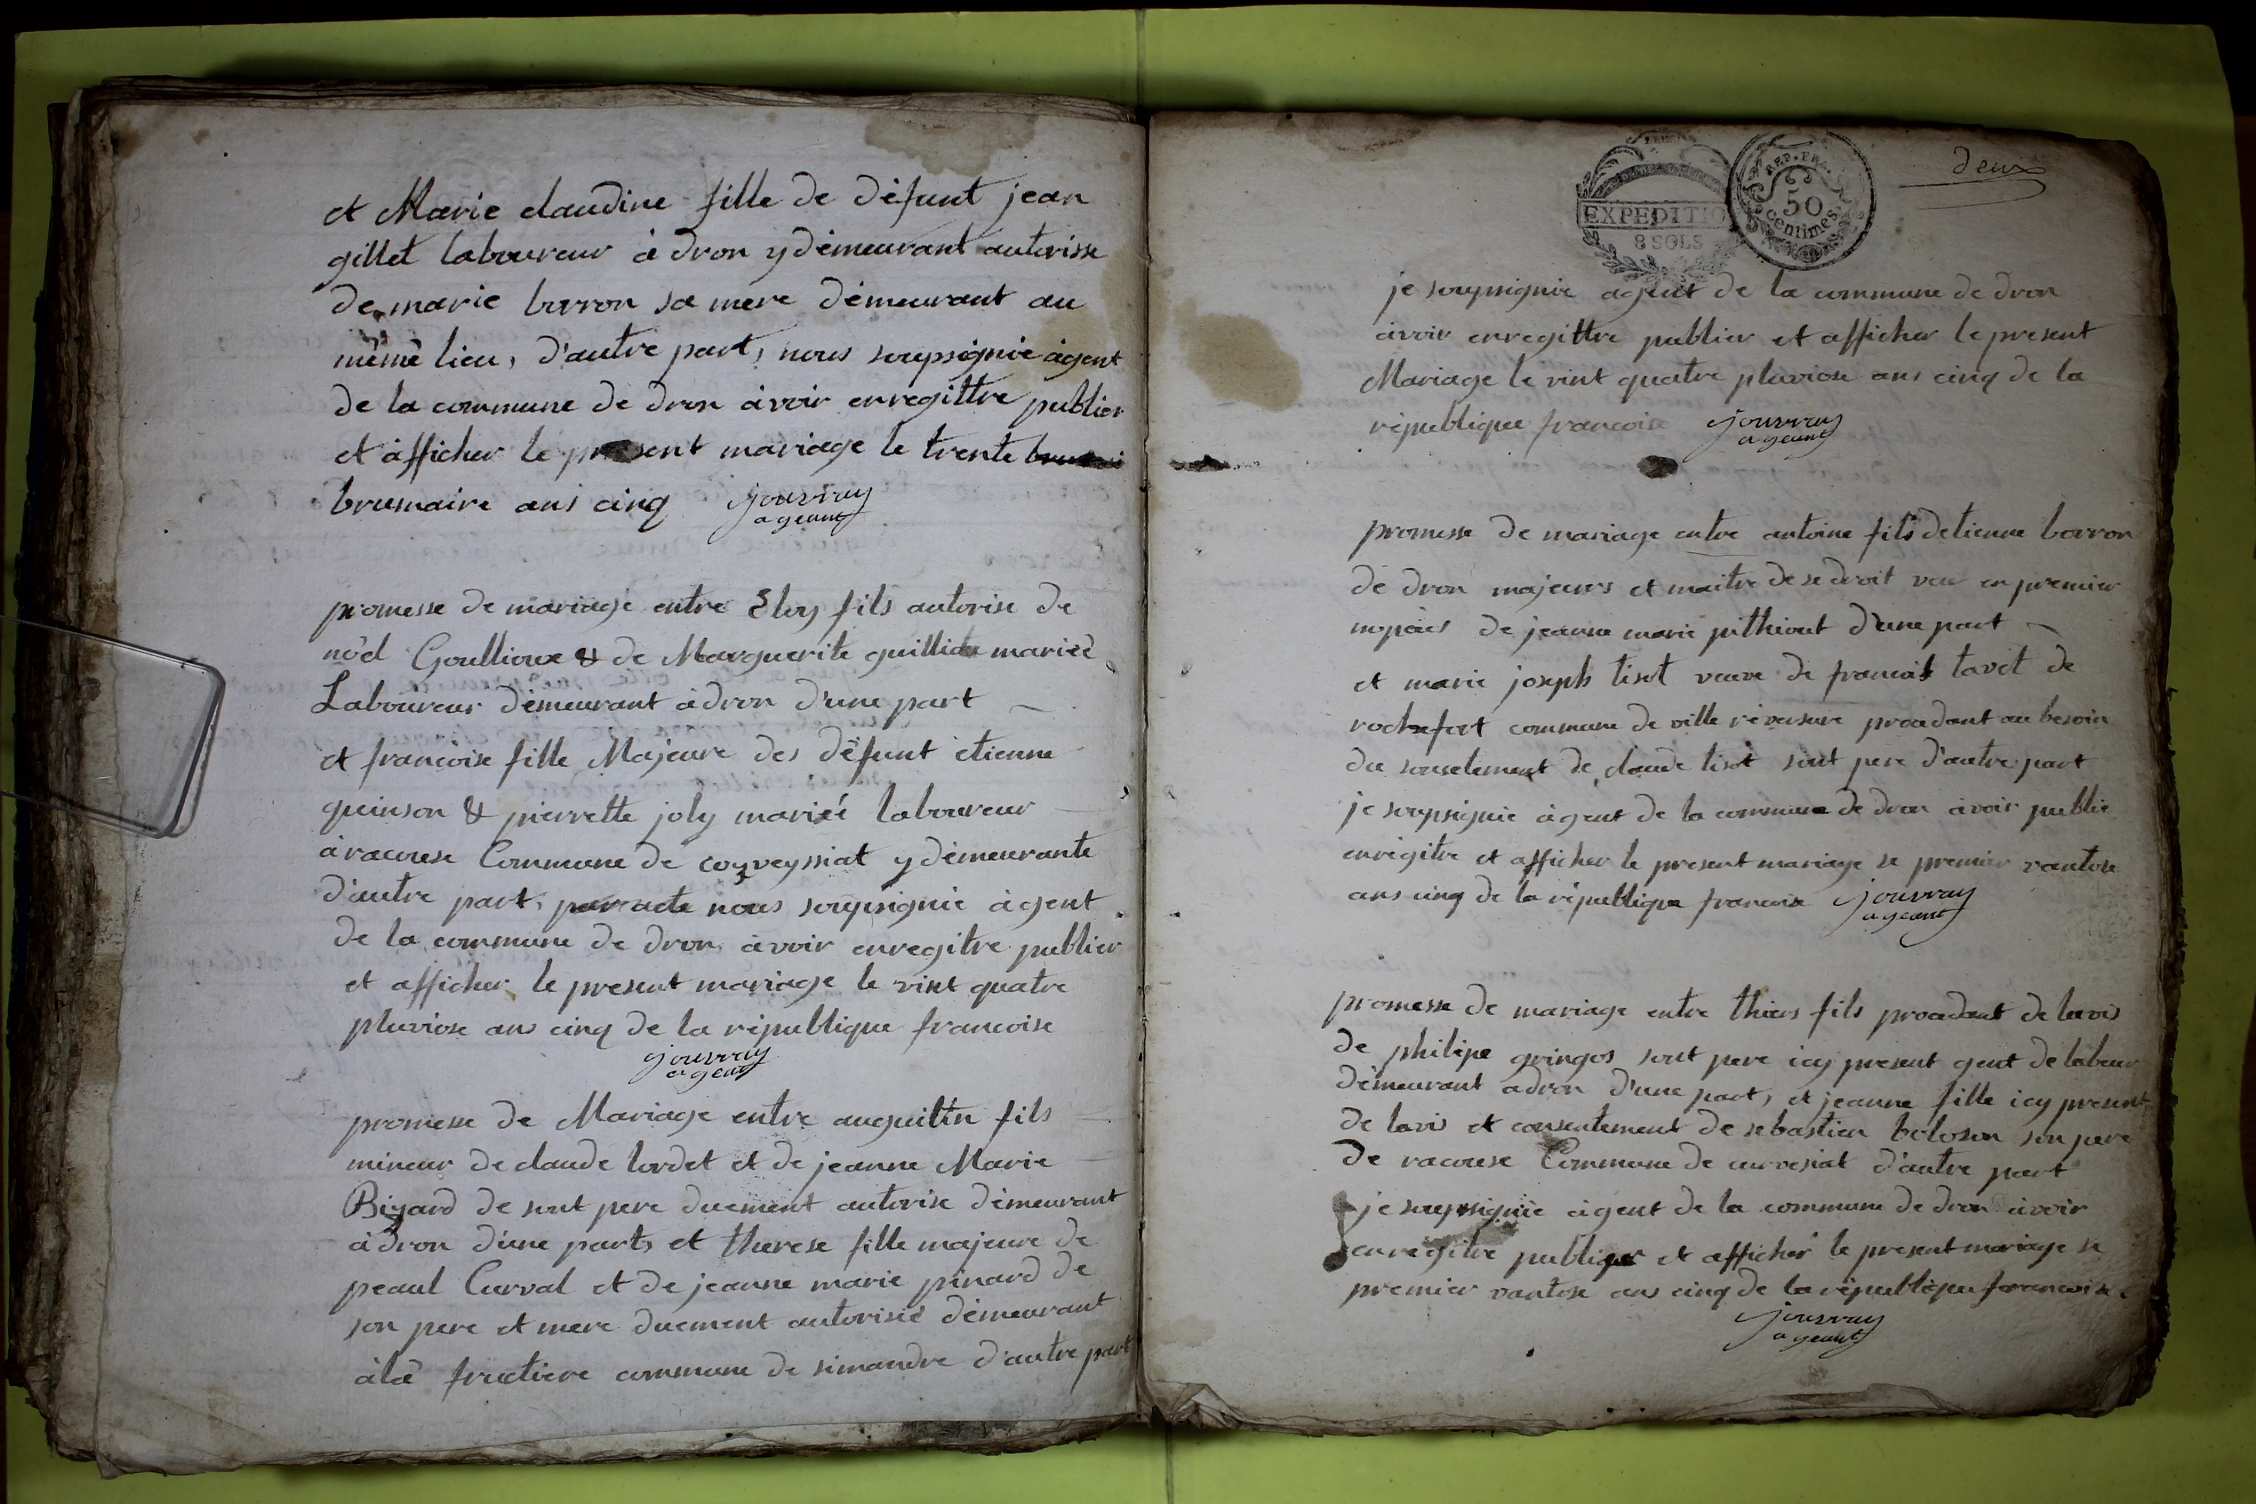 et Marie claudine fille de défunt jean
gillet laboureur à dron y démeurant autorisse
de marie borron sa mere démeurant au
même lieu, d'autre part, nous soupsignié àgent
de la commune de dron àvoir enregittre publier
et àfficher le present mariage le trente
brumaire ans cinq jouvray
ageant
promesse de mariage entre Eloy fils autorise de
nöel Goullioux & de Marguerite guillion mariéé
Laboureur démeurant àdron d'une part
et francoise fille Majeure des défunt étienne
guinson & pierrette joly mariéé laboureur
àracouse Commune de coyveyssiat y démeurante
d'autre part, nous soupsignié àgent
de la commune de dron àvoir enregitre publier
et afficher le present mariage le vint quatre
pluviose ans cinq de la république francoise
jouvray
ageant
promesse de Mariage entre auguittin fils
mineur de claude lordet et de jeanne Marie
Bigard de sont pere duement autorise démeurant
àdron d'une part, et therese fille majeure de
peaul Curval et de jeanne marie pinard de
son pere et mere duement autorisié démeurant
àlà fructiere commune de simandre d'autre part
EXPEDITIO
8 SOLS
REP. FRA.
50
centimes
deux
je soupsignié agent de la commune de dron
àvoir enregittre publier et afficher le present
Mariage le vint quatre pluviose ans cinq de la
république francoise jouvray
ageant
promesse de mariage entre antoine fils detienne borron
de dron majeurs et maitre de se droit veu en premier
nopces de jeanne marie pithiout d'une part
et marie joseph tisot veuve de francois tavet de
rochefort commune de ville reversure procedant au besoin
du de claude tisot sont pere d'autre part
je soupsignié àgent de la commune de dron àvoir publié
enregitre et afficher le present mariage se premier vantose
ans cinq de la république francoise jouvray
ageant
promesse de mariage entre thiers fils procedant de lavis
de philipe gringos sont pere icy present gent de labeur
démeurant adron d'une part, et jeanne fille icy present
de lavis et consentement de sebastien boloson son pere
De racouse Commune de curvesiat d'autre part
je soupsignié àgent de la commune de dron àvoir
enregitre publier et afficher le present mariage se
premier vantose ans cinq de la république francoise
jouvray
ageant